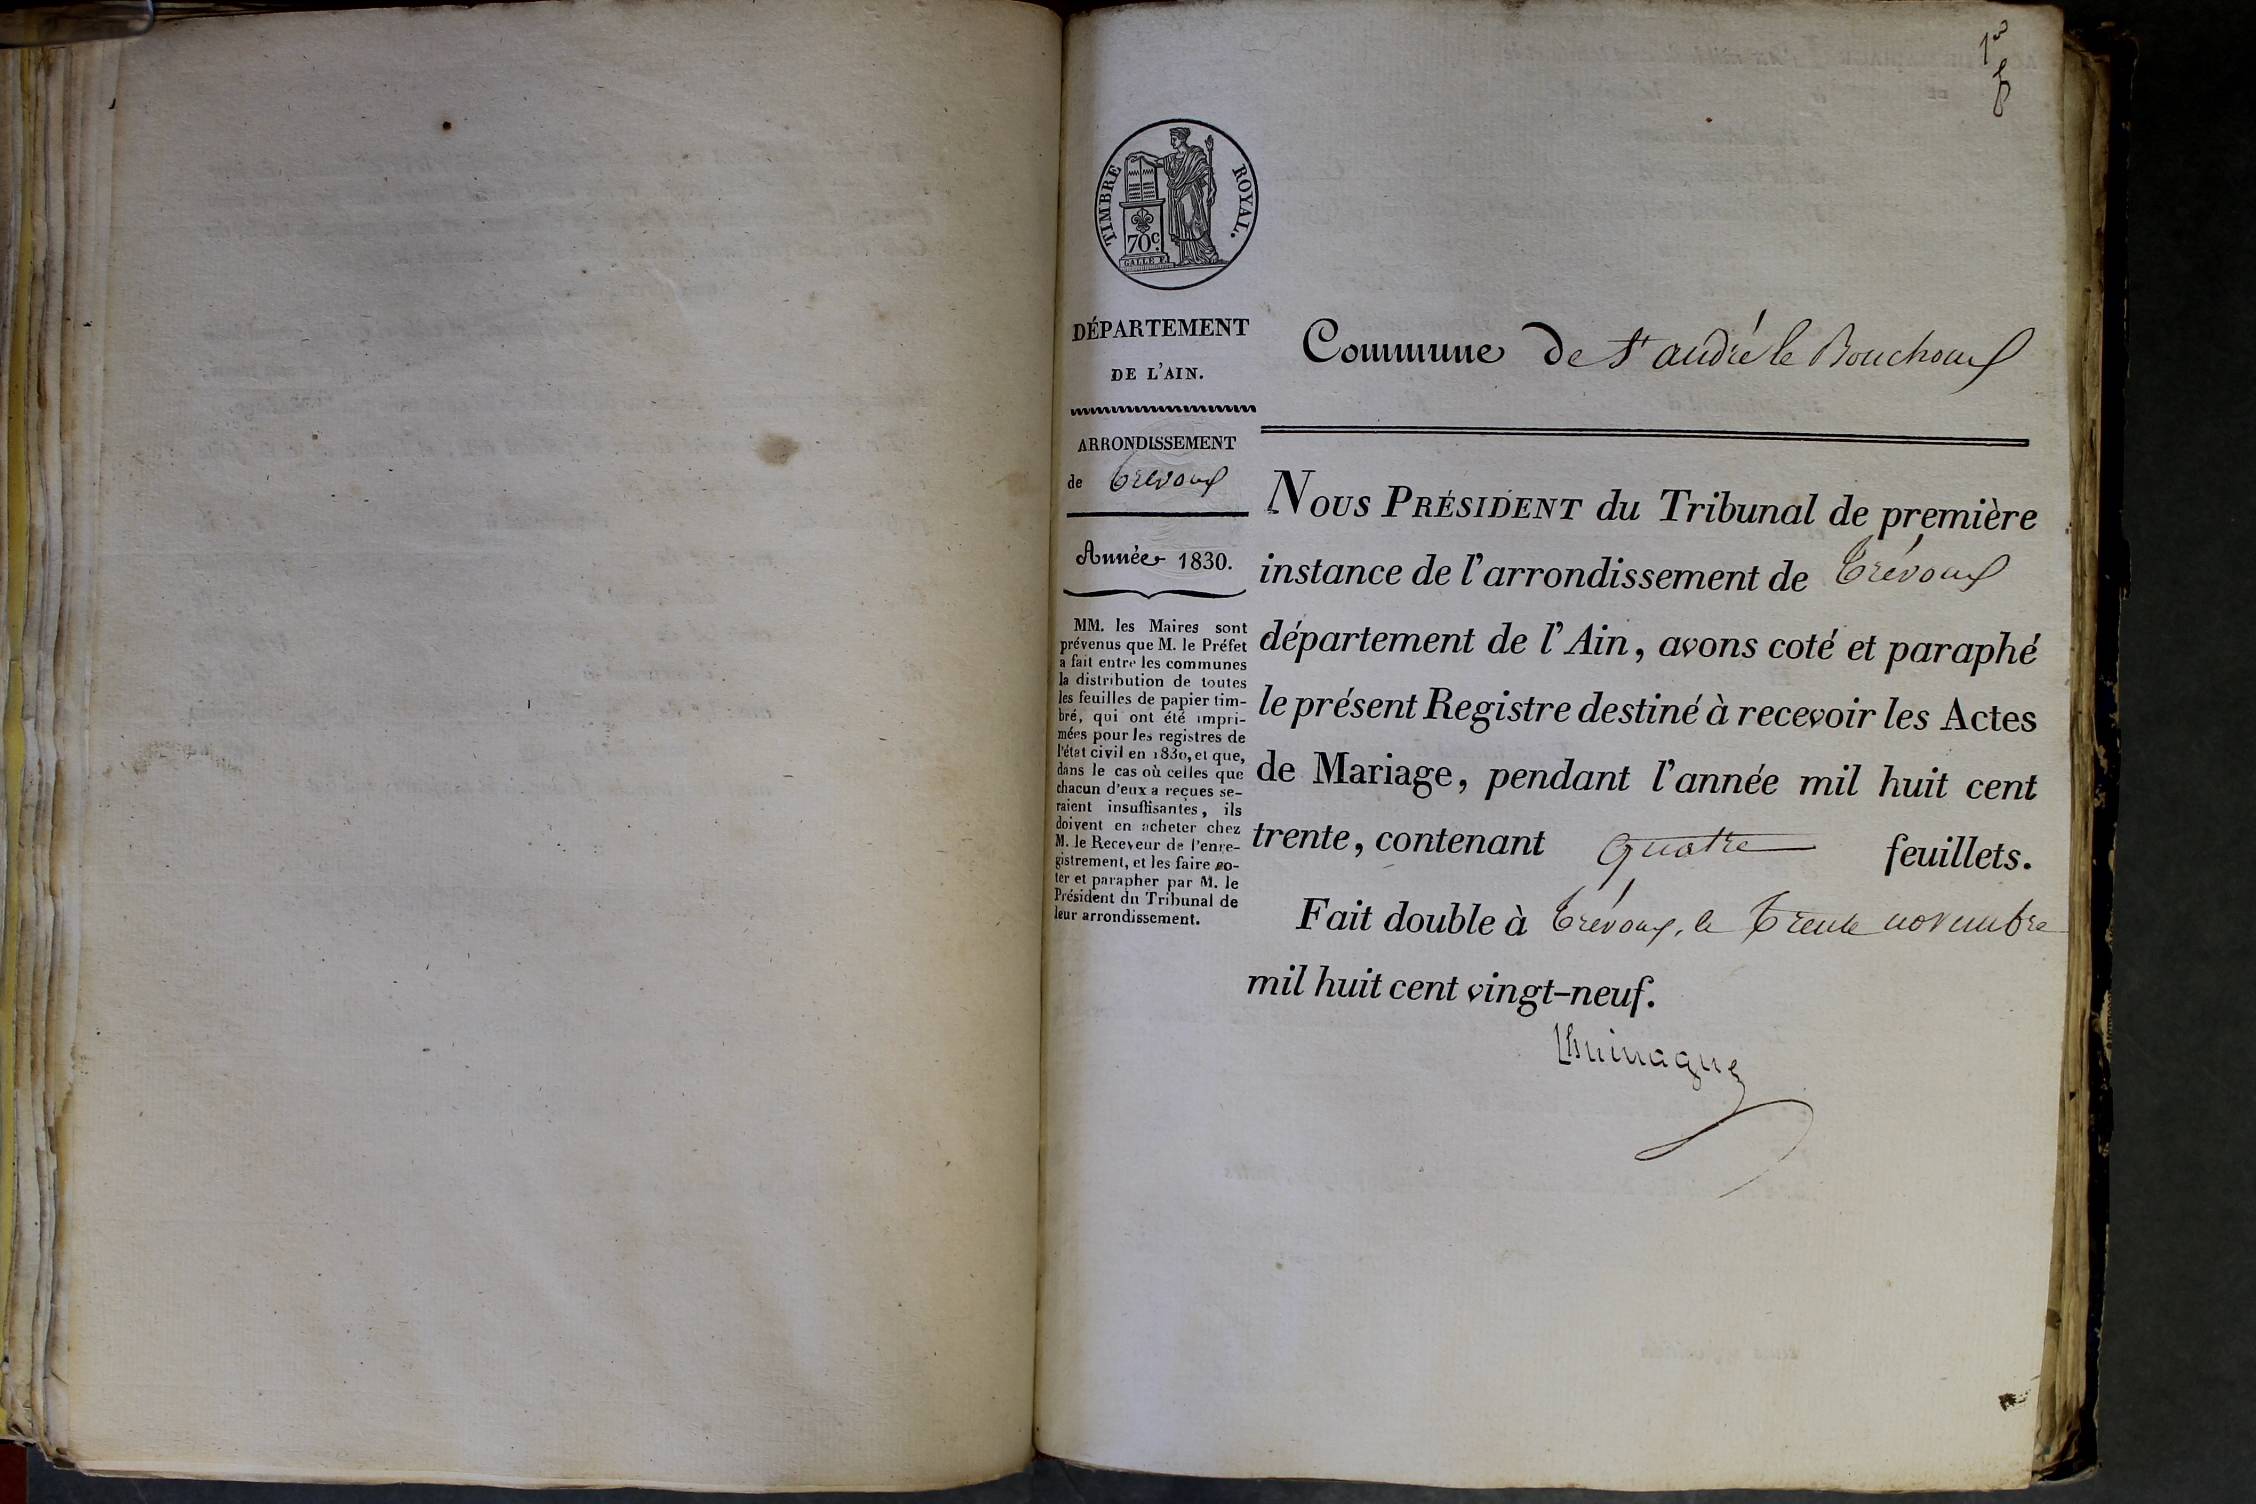 1er
TIMBRE ROYAL.
70c.
GALLE F.
DÉPARTEMENT
DE L'AIN.
ARRONDISSEMENT
de Trevoux
Année 1830.
MM. les Maires sont
prévenus que M. le Préfet
a fait entre les communes
la distribution de toutes
les feuilles de papier tim-
bré, qui ont été impri-
mées pour les registres de
l'état civil en 1830, et que,
dans le cas où celles que
chacun d'eux a reçues se-
raient insuffisantes, ils
doivent en acheter chez
M. le Receveur de l'enre-
gistrement, et les faire co-
ter et parapher par M. le
Président du Tribunal de
leur arrondissement.
Commune de St andré le Bouchoux
NOUS PRÉSIDENT du Tribunal de première
instance de l'arrondissement de Trévoux
département de l'Ain, avons coté et paraphé
le présent Registre destiné à recevoir les Actes
de Mariage, pendant l'année mil huit cent
trente, contenant quatre feuillets.
Fait double à Trévoux, le trente novembre
mil huit cent vingt-neuf.